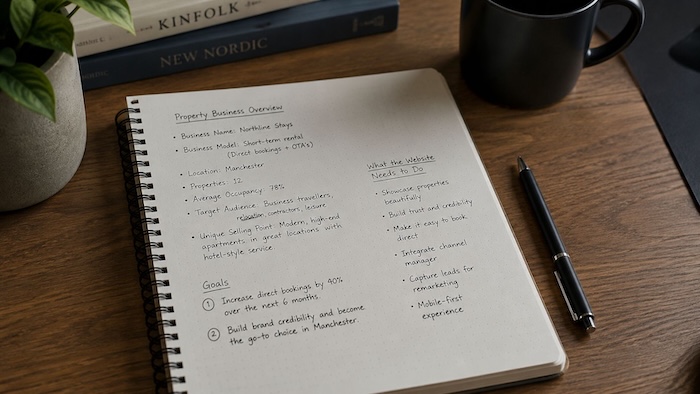 KINFOLK
NEW NORDIC
Property Business Overview
• Business Name: Northline Stays
• Business Model: Short-term rental
(Direct bookings + OTA's)
• Location: Manchester
• Properties: 12
• Average Occupancy: 78%
• Target Audience: Business travellers,
relocation, contractors, leisure
• Unique Selling Point: Modern, high-end
apartments in great locations with
hotel-style service.
Goals
1 Increase direct bookings by 40%
over the next 6 months.
2 Build brand credibility and become
the go-to choice in Manchester.
What the Website
Needs to Do
• Showcase properties
beautifully
• Build trust and credibility
• Make it easy to book
direct
• Integrate channel
manager
• Capture leads for
remarketing
• Mobile-first
experience